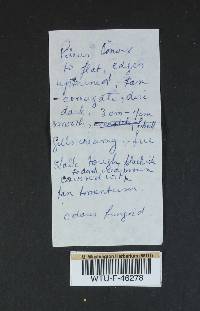 Pileus convex
to flat, edges
upturned, tan
- corrugate, disc
dark. 3 cm - 4 cm
smooth,
Gills creamy,
Stalk tough blackish
to dark
covered with
tan tomentum
odour fungoid
U. Washington Herbarium (WTU)
WTU-F-46278